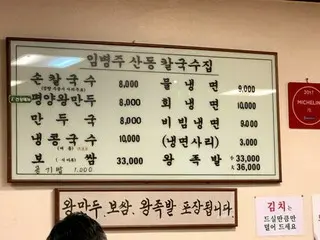 임병주 산동 칼국수집
손칼국수 8,000
평양왕만두 8,000
만두국 8,000
냉콩국수 10,000
보쌈 33,000
공기밥 1,000
물냉면 9,000
회냉면 10,000
비빔냉면 9,000
(냉면사리) 3,000
왕족발 33,000
36,000
왕만두, 보쌈, 왕족발 포장됩니다.
2017
MICHELIN
김치는
드실만큼만
덜어 드세요